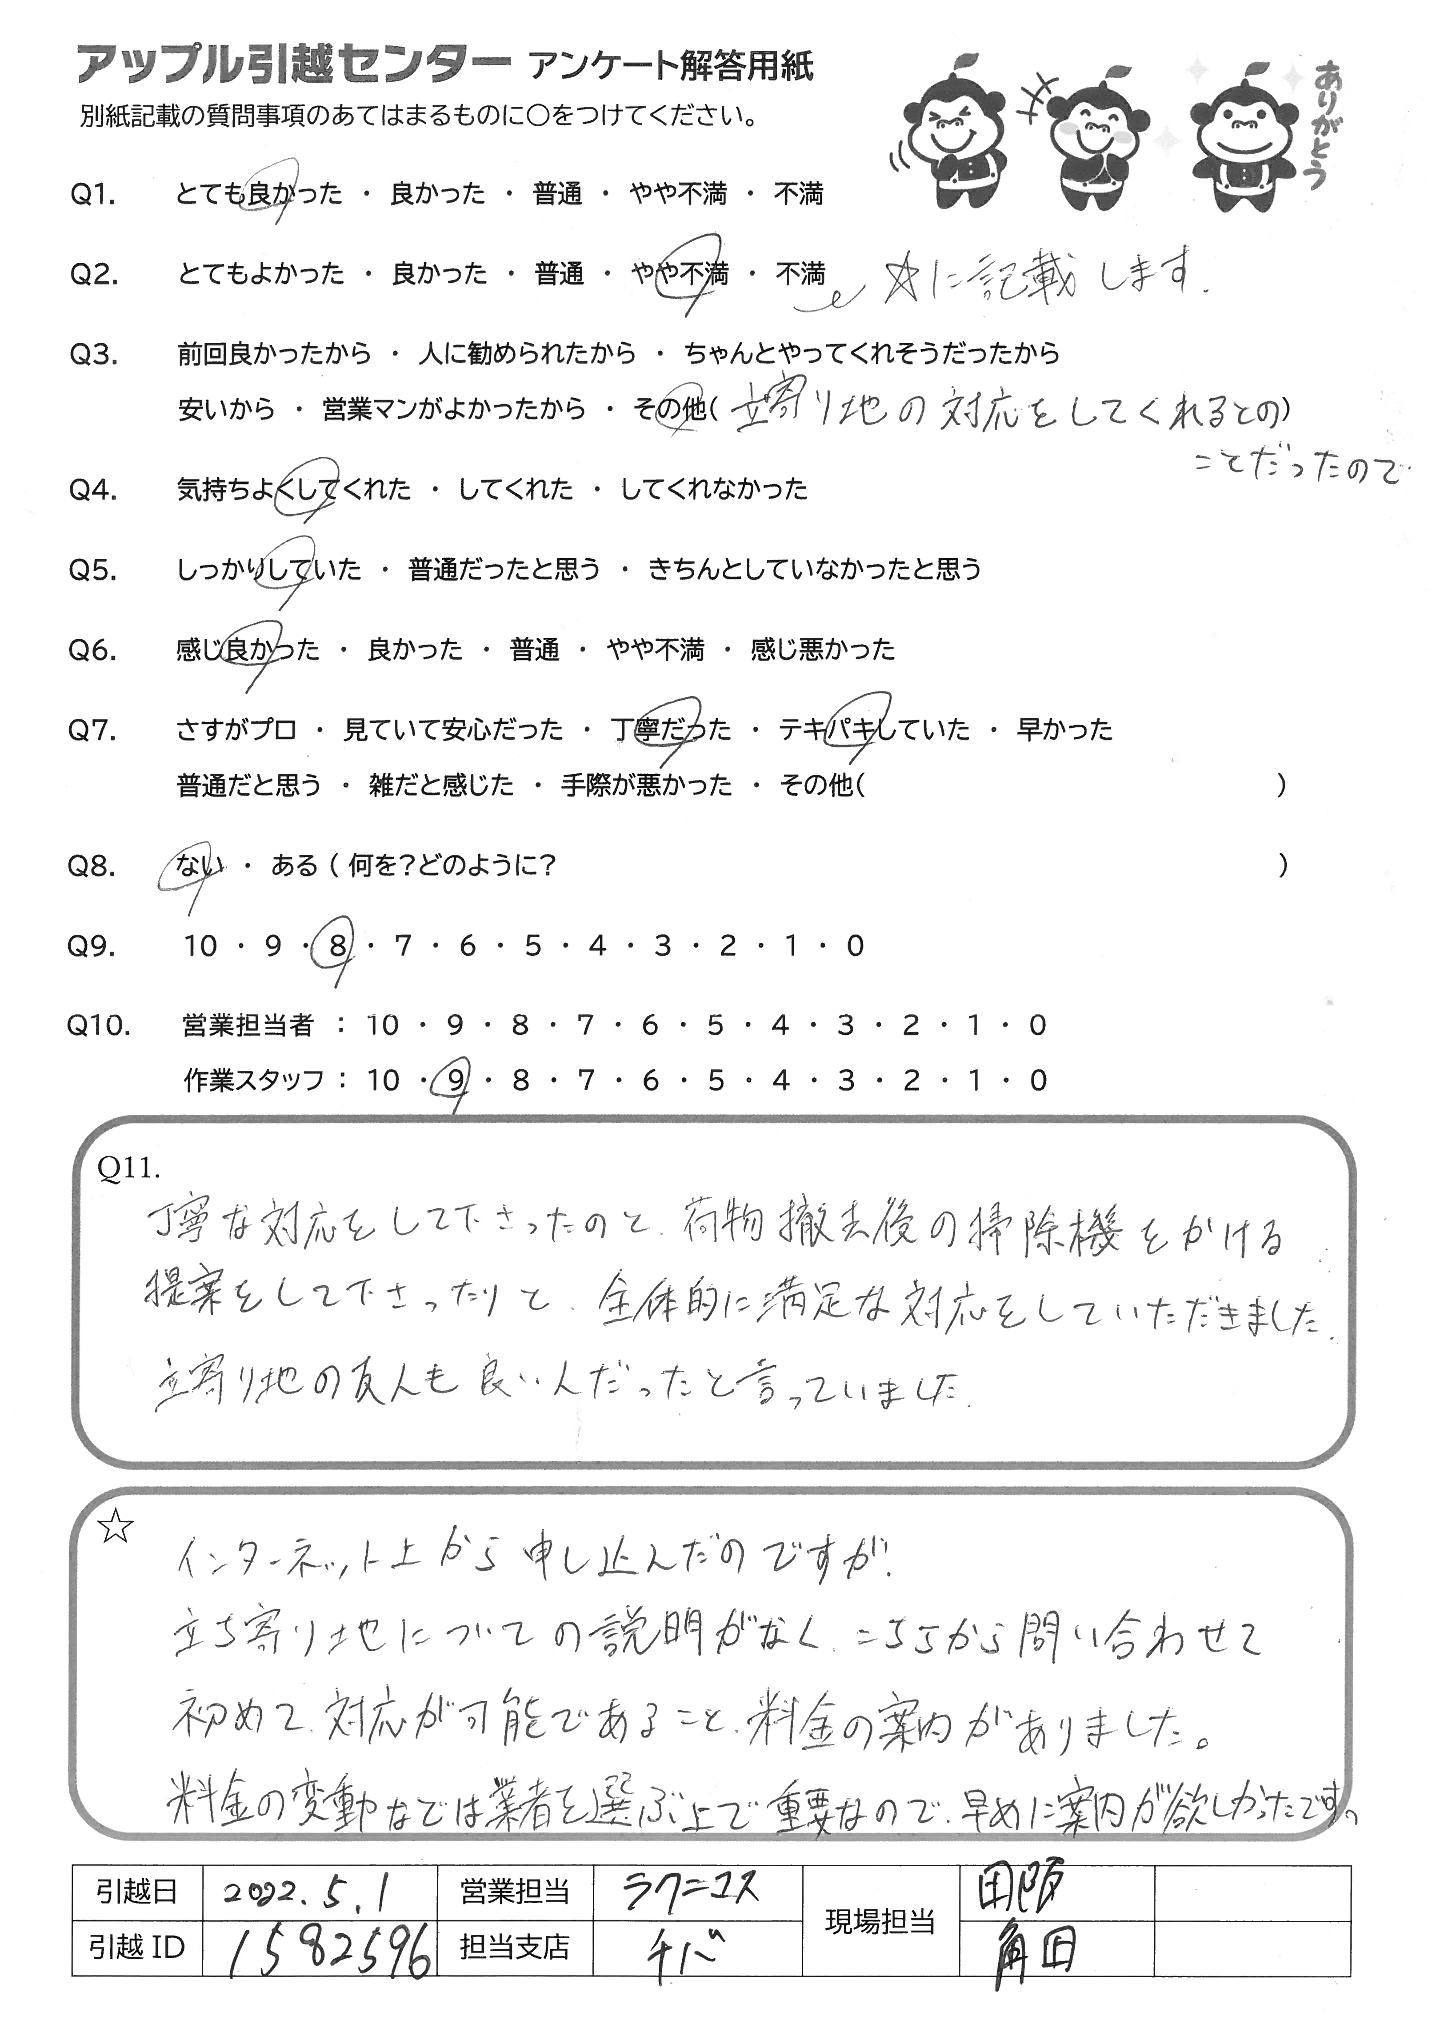 アップル引越センター アンケート解答用紙
別紙記載の質問事項のあてはまるものに○をつけてください。
ありがとう
Q1. とても良かった ・ 良かった ・ 普通 ・ やや不満 ・ 不満
Q2. とてもよかった ・ 良かった ・ 普通 ・ やや不満 ・ 不満 ☆に記載します.
Q3. 前回良かったから ・ 人に勧められたから ・ ちゃんとやってくれそうだったから
安いから ・ 営業マンがよかったから ・ その他( 立寄り地の対応をしてくれるとの)
ことだったので
Q4. 気持ちよくしてくれた ・ してくれた ・ してくれなかった
Q5. しっかりしていた ・ 普通だったと思う ・ きちんとしていなかったと思う
Q6. 感じ良かった ・ 良かった ・ 普通 ・ やや不満 ・ 感じ悪かった
Q7. さすがプロ ・ 見ていて安心だった ・ 丁寧だった ・ テキパキしていた ・ 早かった
普通だと思う ・ 雑だと感じた ・ 手際が悪かった ・ その他( )
Q8. ない ・ ある ( 何を?どのように? )
Q9. 10 ・ 9 ・ 8 ・ 7 ・ 6 ・ 5 ・ 4 ・ 3 ・ 2 ・ 1 ・ 0
Q10. 営業担当者 : 10 ・ 9 ・ 8 ・ 7 ・ 6 ・ 5 ・ 4 ・ 3 ・ 2 ・ 1 ・ 0
作業スタッフ : 10 ・ 9 ・ 8 ・ 7 ・ 6 ・ 5 ・ 4 ・ 3 ・ 2 ・ 1 ・ 0
Q11.
丁寧な対応をして下さったのと、荷物撤去後の掃除機をかける
提案をして下さったりと、全体的に満足な対応をしていただきました.
立寄り地の友人も良い人だったと言っていました.
☆
インターネット上から申し込んだのですが、
立ち寄り地についての説明がなく、こちらから問い合わせて
初めて、対応が可能であること、料金の案内がありました。
料金の変動などは業者を選ぶ上で重要なので、早めに案内が欲しかったです。
引越日 2022.5.1 営業担当 ラクニコス 現場担当 田阪
引越ID 1582596 担当支店 チバ 角田